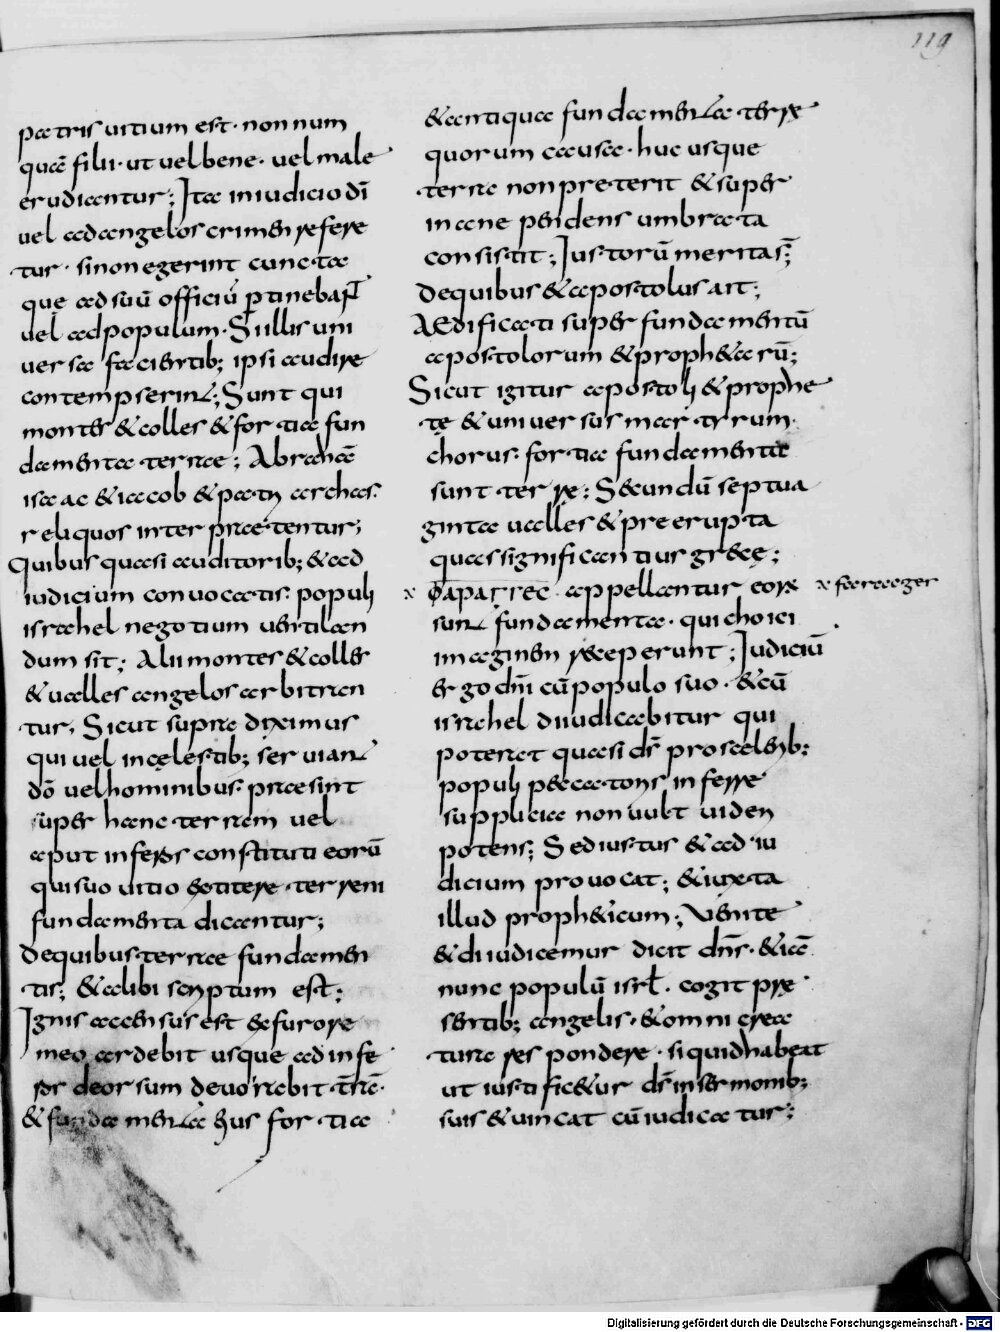 119
patris uitium est · non num
quā filii · ut uel bene · uel male
erudiantur ; Ita in iudicio dī
uel ad angelos crimen refere
tur · si non egerint cuncta
que ad suū officiū ptinebant
uel ad populum · Si illis uni
uersa facientib; ipsi audire
contempserint ; Sunt qui
montes & colles & fortia fun
damenta terrae ; Abraham
isaac & iacob & patriarchas
reliquos interpraetentur ;
Quibus quasi auditorib; & ad
iudicium conuocatis populi
israhel negotium uentilan
dum sit ; Alii montes & colles
& ualles angelos arbitran
tur, Sicut supra diximus
qui uel in cęlestib; seruiant
dō uel hominibus praesint
super hanc terram uel
aput inferos constituti eorū
qui suo uitio exstitere terreni
fundamenta dicantur ;
De quibus terrae fundamen
tis; & alibi scriptum est ;
Ignis accensus est ex furore
meo ardebit usque ad infe
ros deorsum deuorabit trā
& fundamenta eius fortia
& antiqua fundamenta terre
quorum causa · huc usque
terra non preterit & super
inane pendens umbrata
consistit ; Iustorū meritas ;
De quibus & apostolus ait ;
Aedificati super fundamentū
apostolorum & proph&arū ;
Sicut igitur apostoli & prophe
tę & uniuersus martyrum
chorus fortia fundamenta
sunt terre ; Secundū septua
ginta ualles & preerupta
quas significantius grece ;
x ΦΑΡΑΓΓΕC appellantur eorum x faraager
sunt fundamenta · qui choici
imaginem receperunt ; Iudiciū
ergo dn̄i cū populo suo · & cū
israhel diiudicabitur qui
poterat quasi ds̄ pro scelerib;
populi peccatoris inferre
supplicia non uult uideri
potens ; Sed iustus & ad iu
dicium prouocat ; & iuxta
illud proph&icum ; Uenite
& diiudicemur dicit dn̄s · & iā
nunc populū isrl̄ · cogit pre
sentib; angelis · & omni crea
tura respondere · si quid habeat
ut iustific&ur ds̄ in sermonib;
suis & uincat cū iudicatur ;
Digitalisierung gefördert durch die Deutsche Forschungsgemeinschaft - DFG